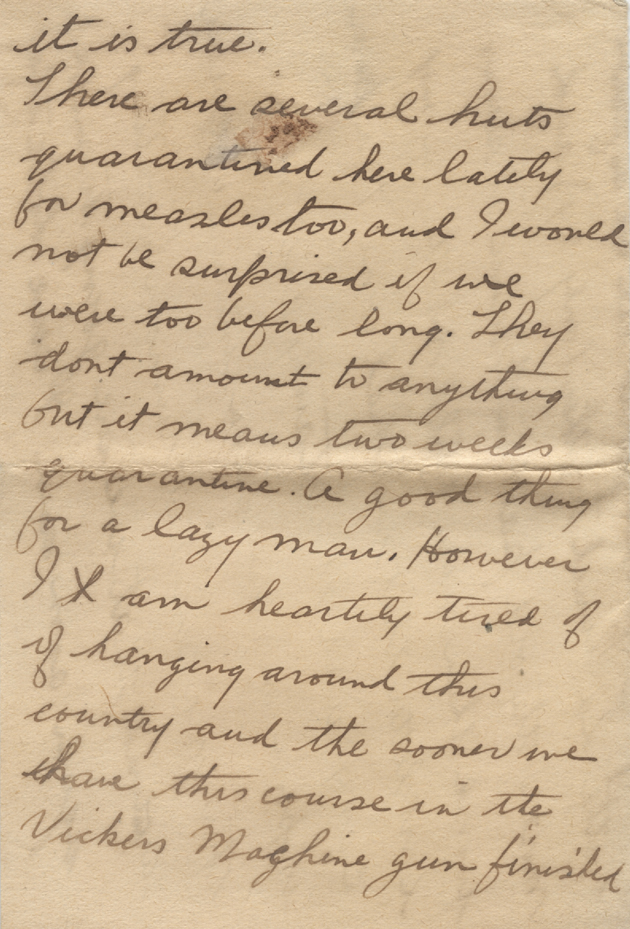 it is true.
There are several huts
quarantined here lately
for measles too, and I would
not be surprised if we
were too before long. They
dont amount to anything
but it means two weeks
quarantine. A good thing
for a lazy man. However
I am heartily tired of
if hanging around this
country and the sooner we
have this course in the
Vickers Maghine gun finished